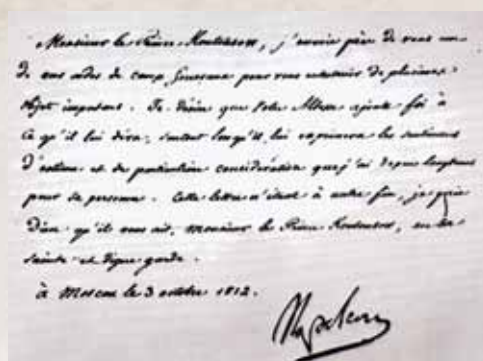 Monsieur le Prince Koutousow, j'envoie près de vous un
de mes aides de camp Généraux pour vous entretenir de plusieurs
objets importants. Je désire que Votre Altesse ajoute foi à
ce qu'il lui dira, surtout lorsqu'il lui exprimera les sentiments
d'estime et de particulière considération que j'ai depuis longtemps
pour sa personne. Cette lettre n'étant à autre fin, je prie
Dieu qu'il vous ait, Monsieur le Prince Koutousow, en sa
sainte et digne garde.
à Moscou le 3 octobre 1812.
Napoleon